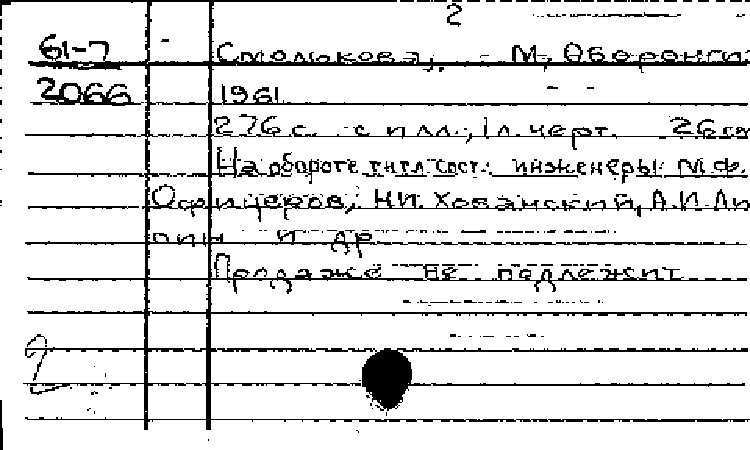 2
61-7 Смолюкова, - М, Оборонги
2066 1961
276 с. с илл., 1 л. черт. 26 см
На обороте тит. л. сост.: инженеры М.Ф.
Офицеров, Н.И. Хованский, А.И. Ли
пин и др
Продаже не подлежит
2